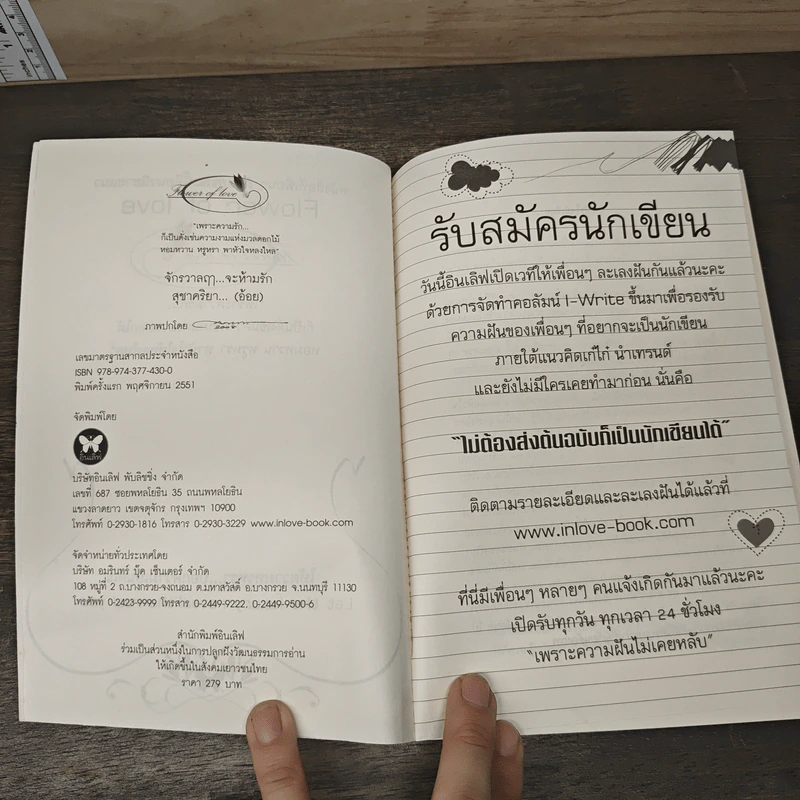 Flower of love
"เพราะความรัก...
ก็เป็นดั่งเช่นความงามแห่งมวลดอกไม้
หอมหวาน หรูหรา พาหัวใจหลงใหล"
จักรวาลฤๅ...จะห้ามรัก
สุชาคริยา... (อ้อย)
ภาพปกโดย
เลขมาตรฐานสากลประจำหนังสือ
ISBN 978-974-377-430-0
พิมพ์ครั้งแรก พฤศจิกายน 2551
จัดพิมพ์โดย
อินเลิฟ
บริษัทอินเลิฟ พับลิชชิ่ง จำกัด
เลขที่ 687 ซอยพหลโยธิน 35 ถนนพหลโยธิน
แขวงลาดยาว เขตจตุจักร กรุงเทพฯ 10900
โทรศัพท์ 0-2930-1816 โทรสาร 0-2930-3229 www.inlove-book.com
จัดจำหน่ายทั่วประเทศโดย
บริษัท อมรินทร์ บุ๊ค เซ็นเตอร์ จำกัด
108 หมู่ที่ 2 ถ.บางกรวย-จงถนอม ต.มหาสวัสดิ์ อ.บางกรวย จ.นนทบุรี 11130
โทรศัพท์ 0-2423-9999 โทรสาร 0-2449-9222, 0-2449-9500-6
สำนักพิมพ์อินเลิฟ
ร่วมเป็นส่วนหนึ่งในการปลูกฝังวัฒนธรรมการอ่าน
ให้เกิดขึ้นในสังคมเยาวชนไทย
ราคา 279 บาท
รับสมัครนักเขียน
วันนี้อินเลิฟเปิดเวทีให้เพื่อนๆ ละเลงฝันกันแล้วนะคะ
ด้วยการจัดทำคอลัมน์ I-Write ขึ้นมาเพื่อรองรับ
ความฝันของเพื่อนๆ ที่อยากจะเป็นนักเขียน
ภายใต้แนวคิดเก๋ไก๋ นำเทรนด์
และยังไม่มีใครเคยทำมาก่อน นั่นคือ
"ไม่ต้องส่งต้นฉบับก็เป็นนักเขียนได้"
ติดตามรายละเอียดและละเลงฝันได้แล้วที่
www.inlove-book.com
ที่นี่มีเพื่อนๆ หลายๆ คนแจ้งเกิดกันมาแล้วนะคะ
เปิดรับทุกวัน ทุกเวลา 24 ชั่วโมง
"เพราะความฝันไม่เคยหลับ"